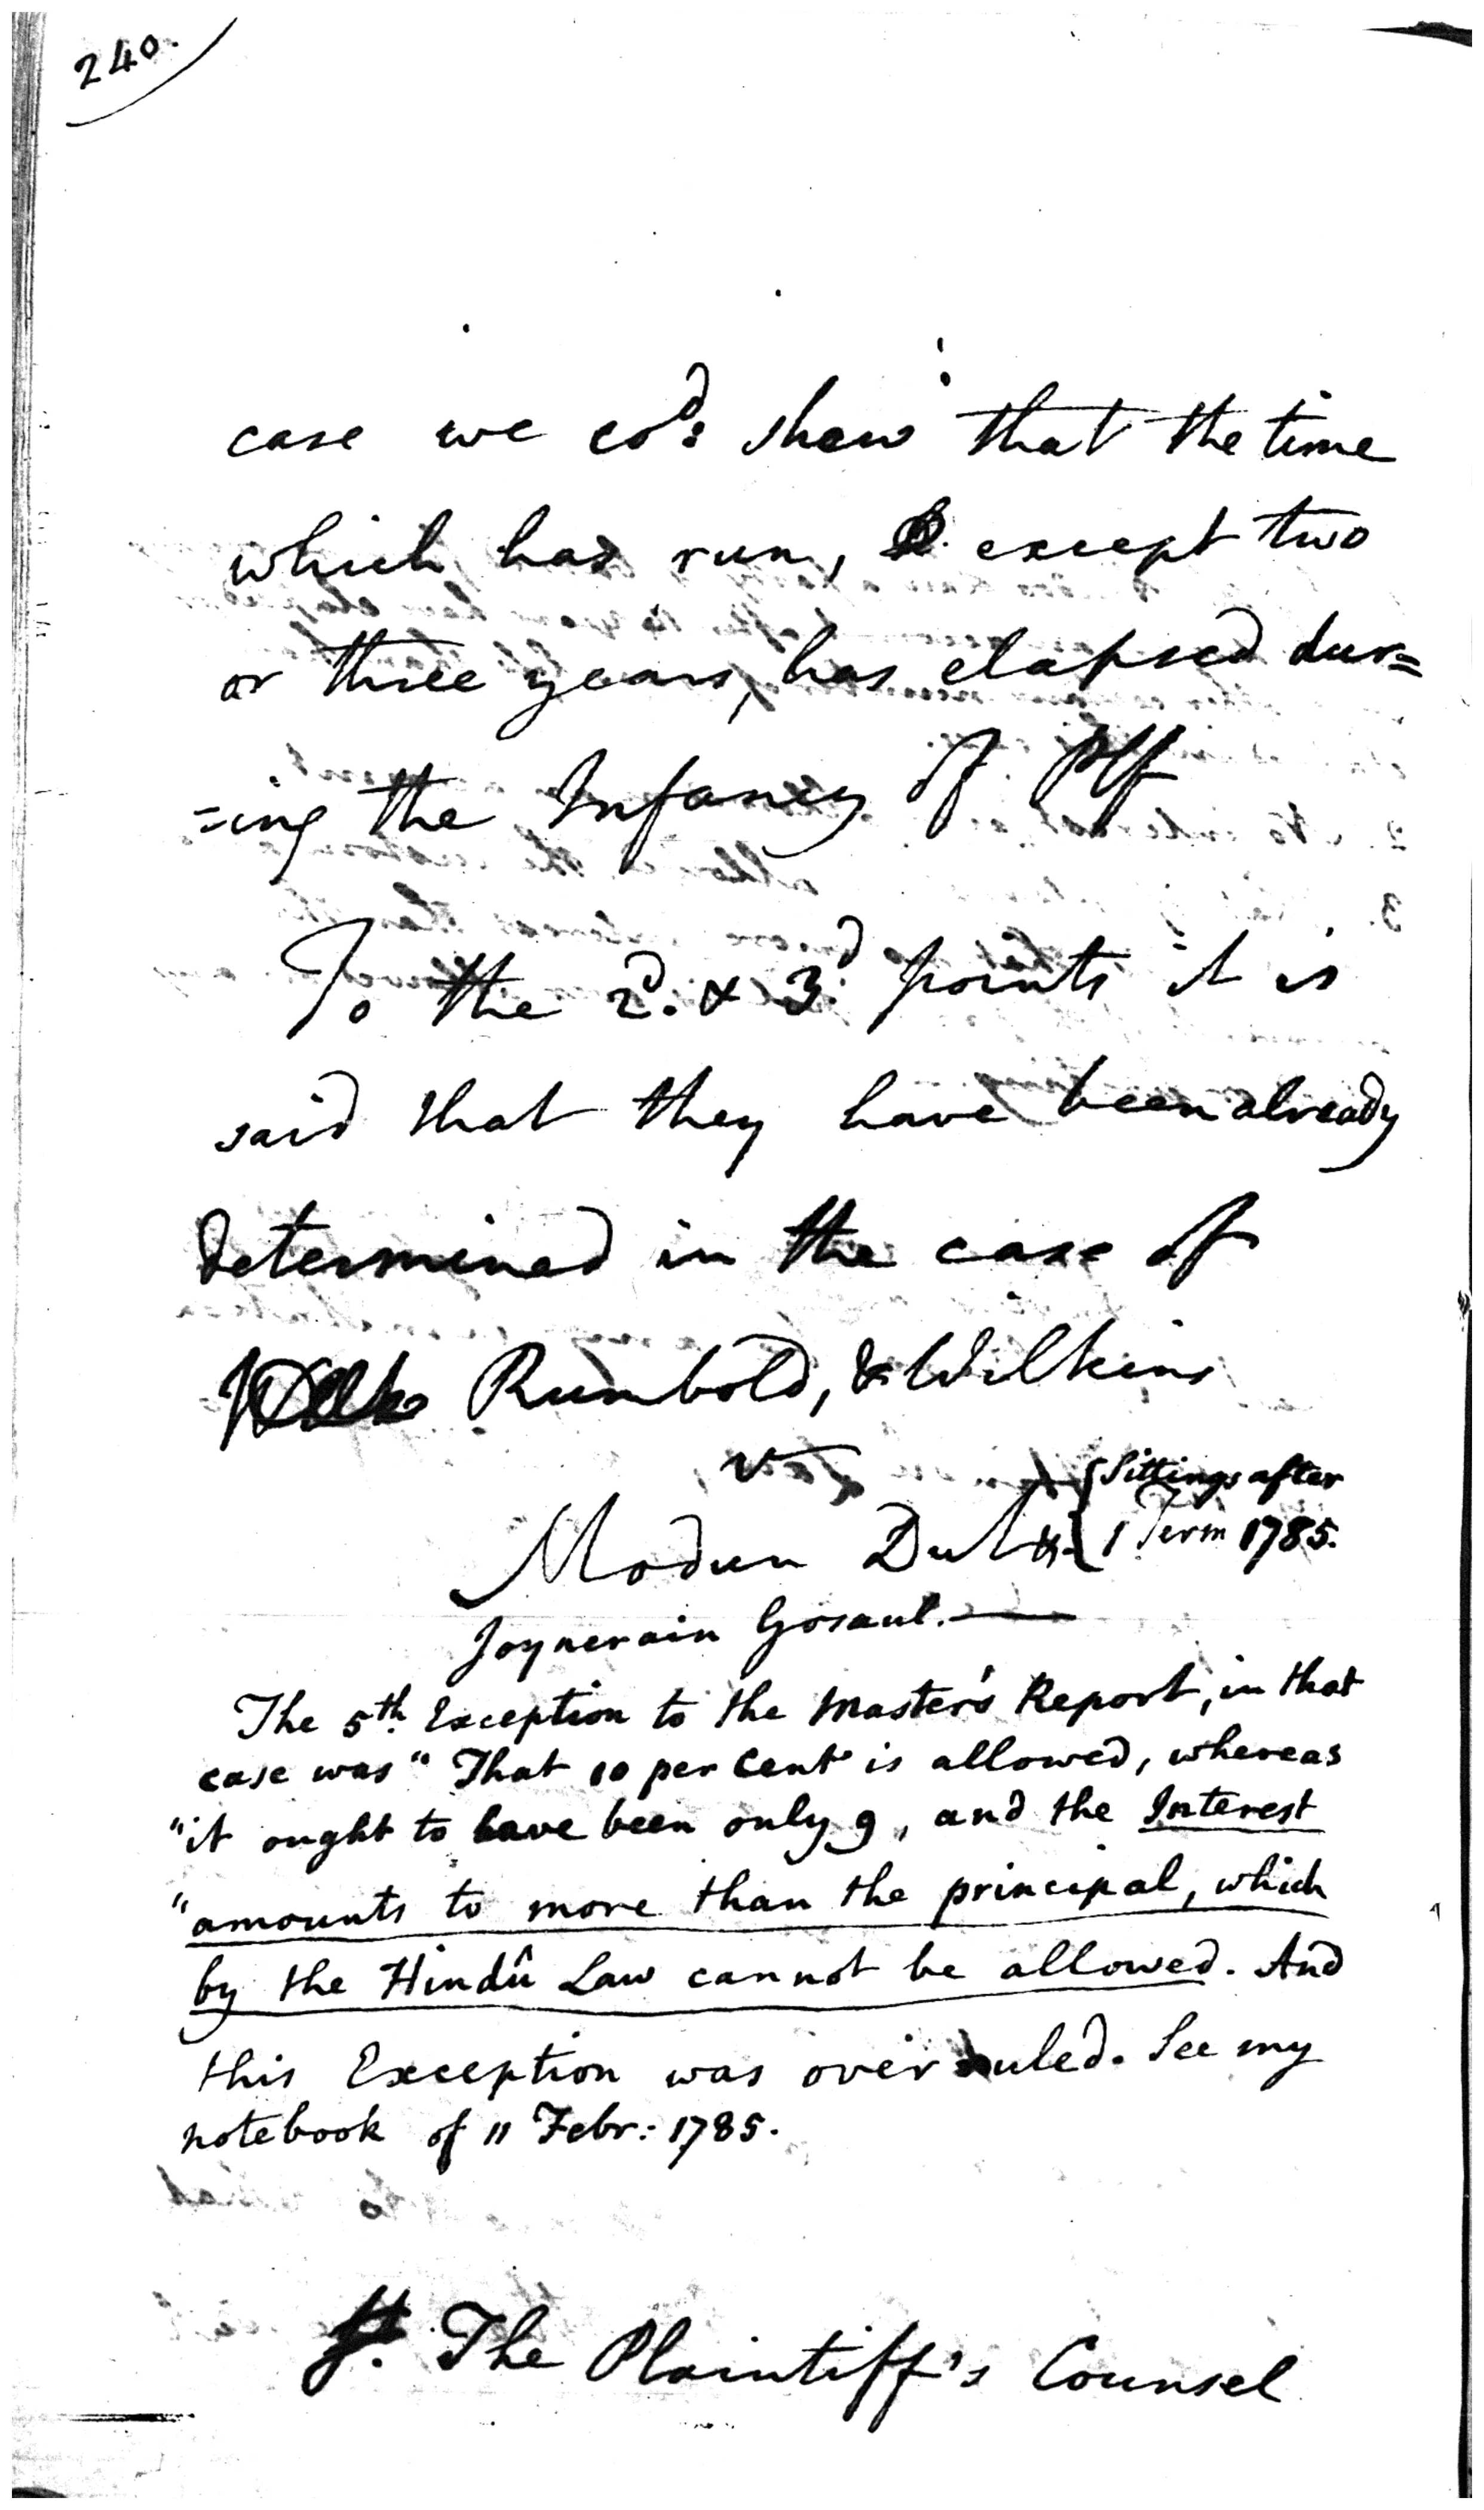 240.
case we cod: shew that the time
which has run, except two
or three years, has elapsed dur=
=ing the Infancy of Plf
To the 2d. & 3d points it is
said that they have been already
determined in the case of
Rumbold, & Wilkins
v
Modun Dutt & { Sittings after
1 Term 1785.
Joynerain Gosaul.
The 5th. Exception to the Master's Report, in that
case was "That 10 per Cent is allowed, whereas
"it ought to have been only 9, and the Interest
"amounts to more than the principal, which
by the Hindû Law cannot be allowed. And
this Exception was over ruled. See my
notebook of 11 Febr: 1785.
The Plaintiff's Counsel